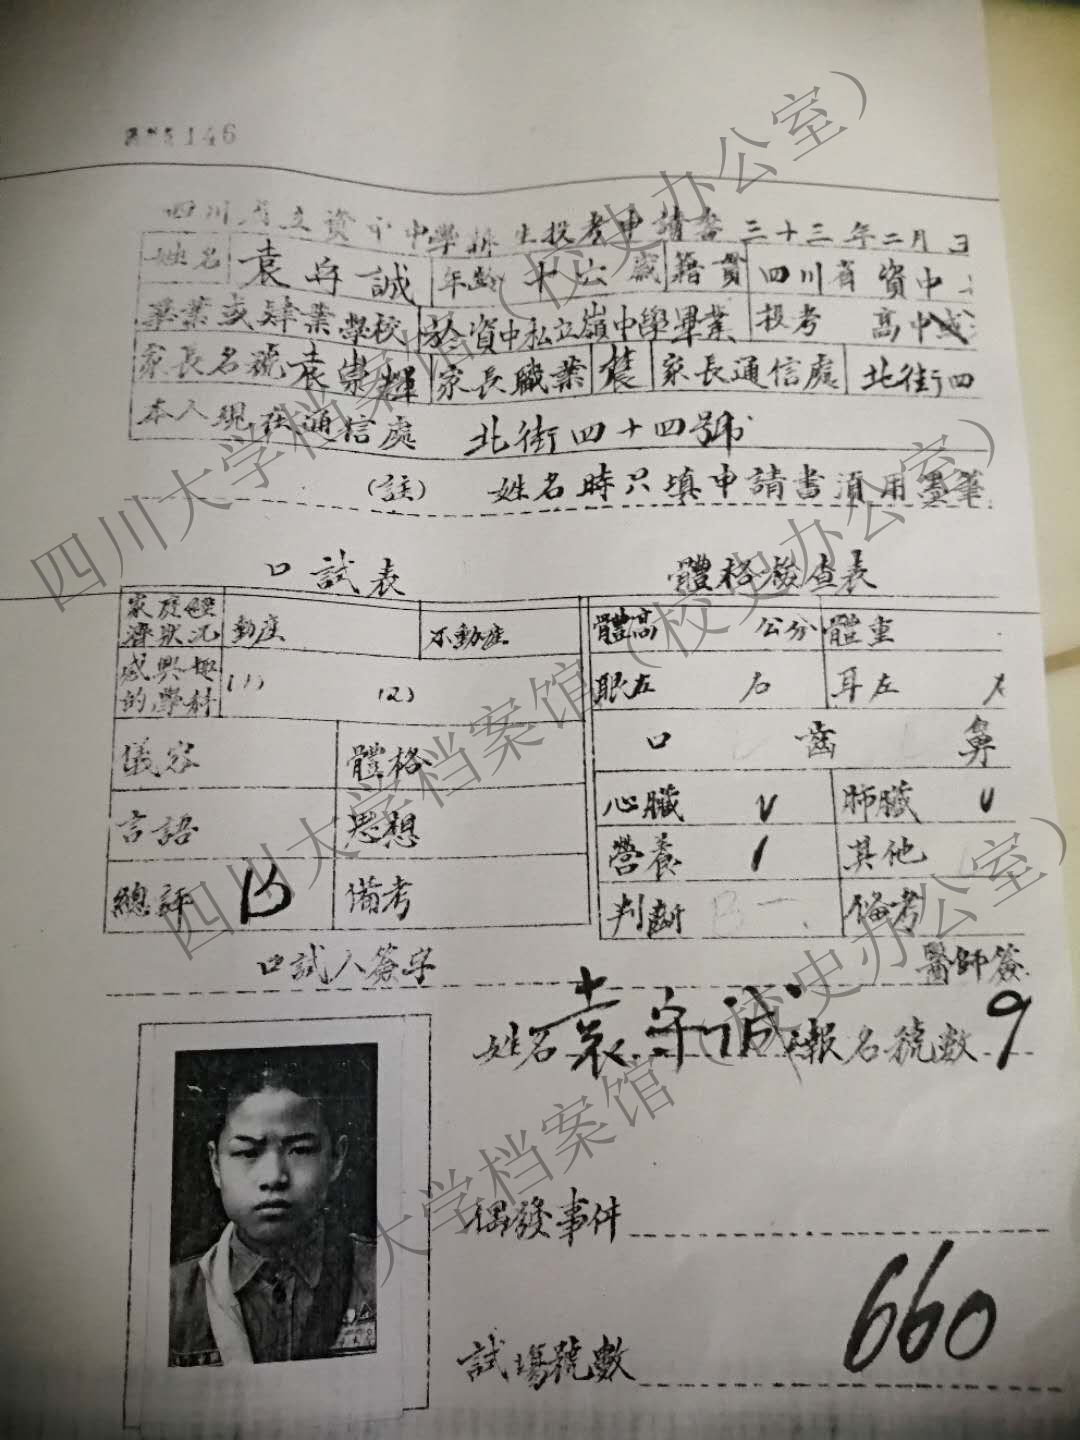 146
四川省立資中中學招生投考申請書 三十三年二月
姓名 袁守誠 年齡 十六歲 籍貫 四川省 資中
畢業或肄業學校 於資中私立嶺中學畢業 投考 高中
家長名號 袁崇輝 家長職業 農 家長通信處 北街四
本人現在通信處 北街四十四號
(註) 姓名時只填申請書須用墨筆
口試表 體格檢查表
家庭經濟狀況 動產 不動產 體高 公分 體重
感興趣的學科 (1) (2) 眼左 右 耳左
口 齒 鼻
儀容 體格
心臟 V 肺臟 V
言語 思想
營養 其他
總評 B 備考 判斷 B 備考
口試人簽字 醫師簽
姓名 袁守誠 報名號數 9
偶發事件
660
試場號數
四川大学档案馆(校史办公室)
四川大学档案馆(校史办公室)
大学档案馆(校史办公室)